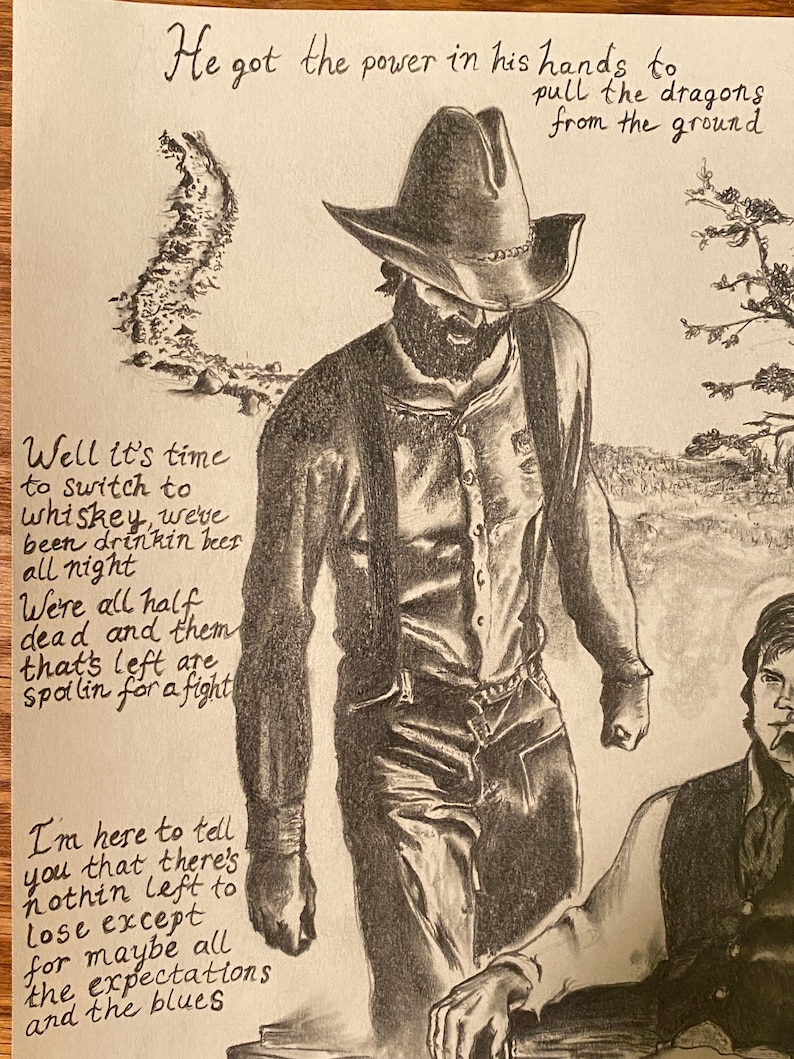 He got the power in his hands to
pull the dragons
from the ground
Well it's time
to switch to
whiskey, we've
been drinkin beer
all night
We're all half
dead and them
that's left are
spoilin for a fight
I'm here to tell
you that there's
nothin left to
lose except
for maybe all
the expectations
and the blues